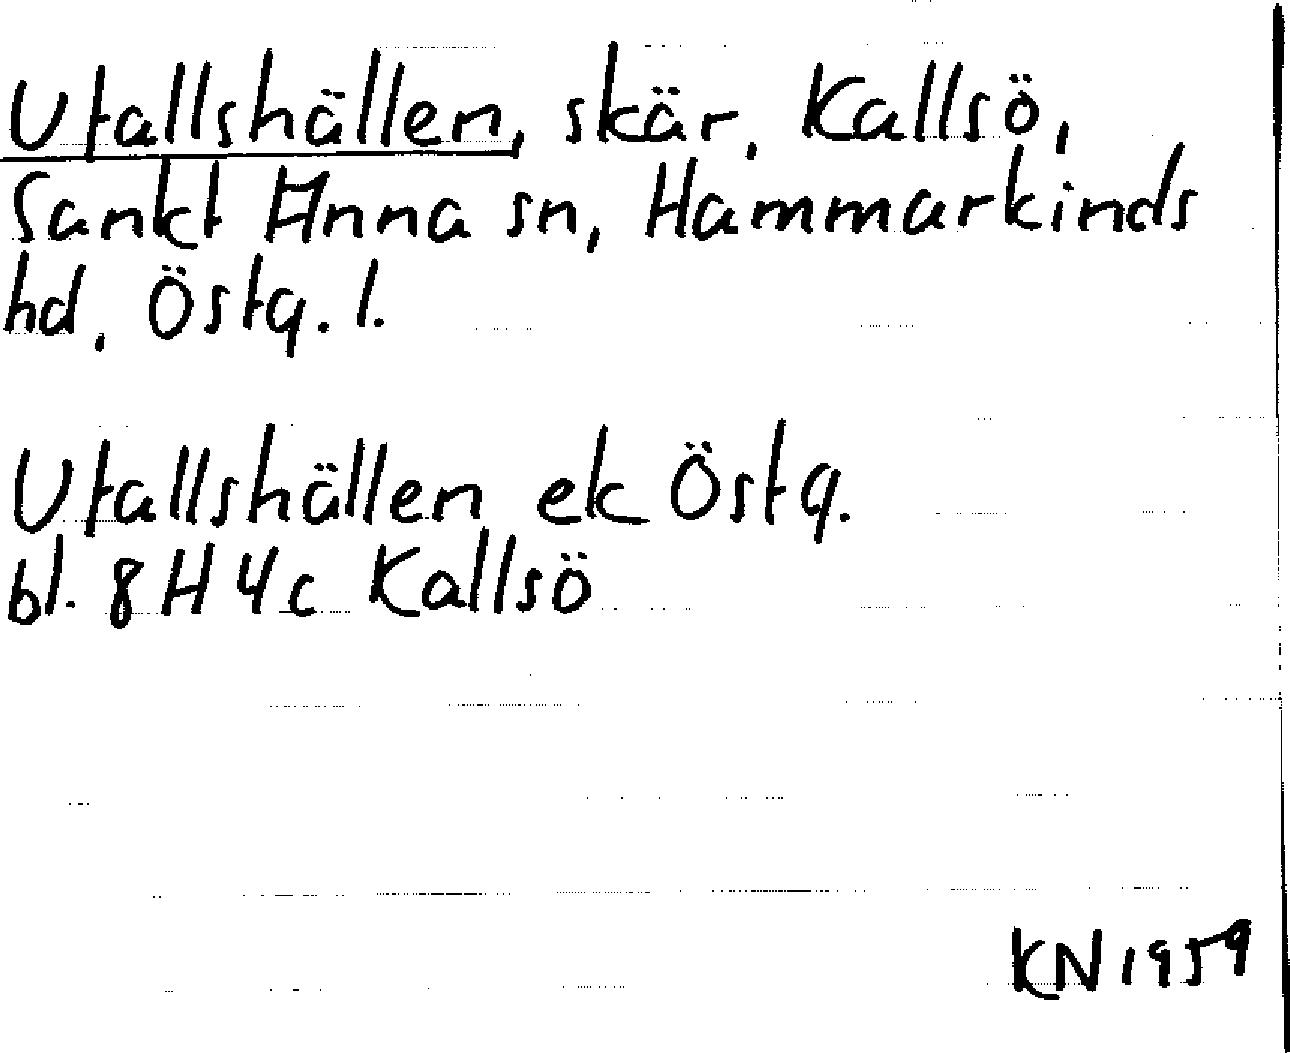 Utallshällen, skär, Kallsö,
Sankt Anna sn, Hammarkinds
hd, Östg. l.
Utallshällen ek Östg.
bl. 8H4c Kallsö
KN 1959